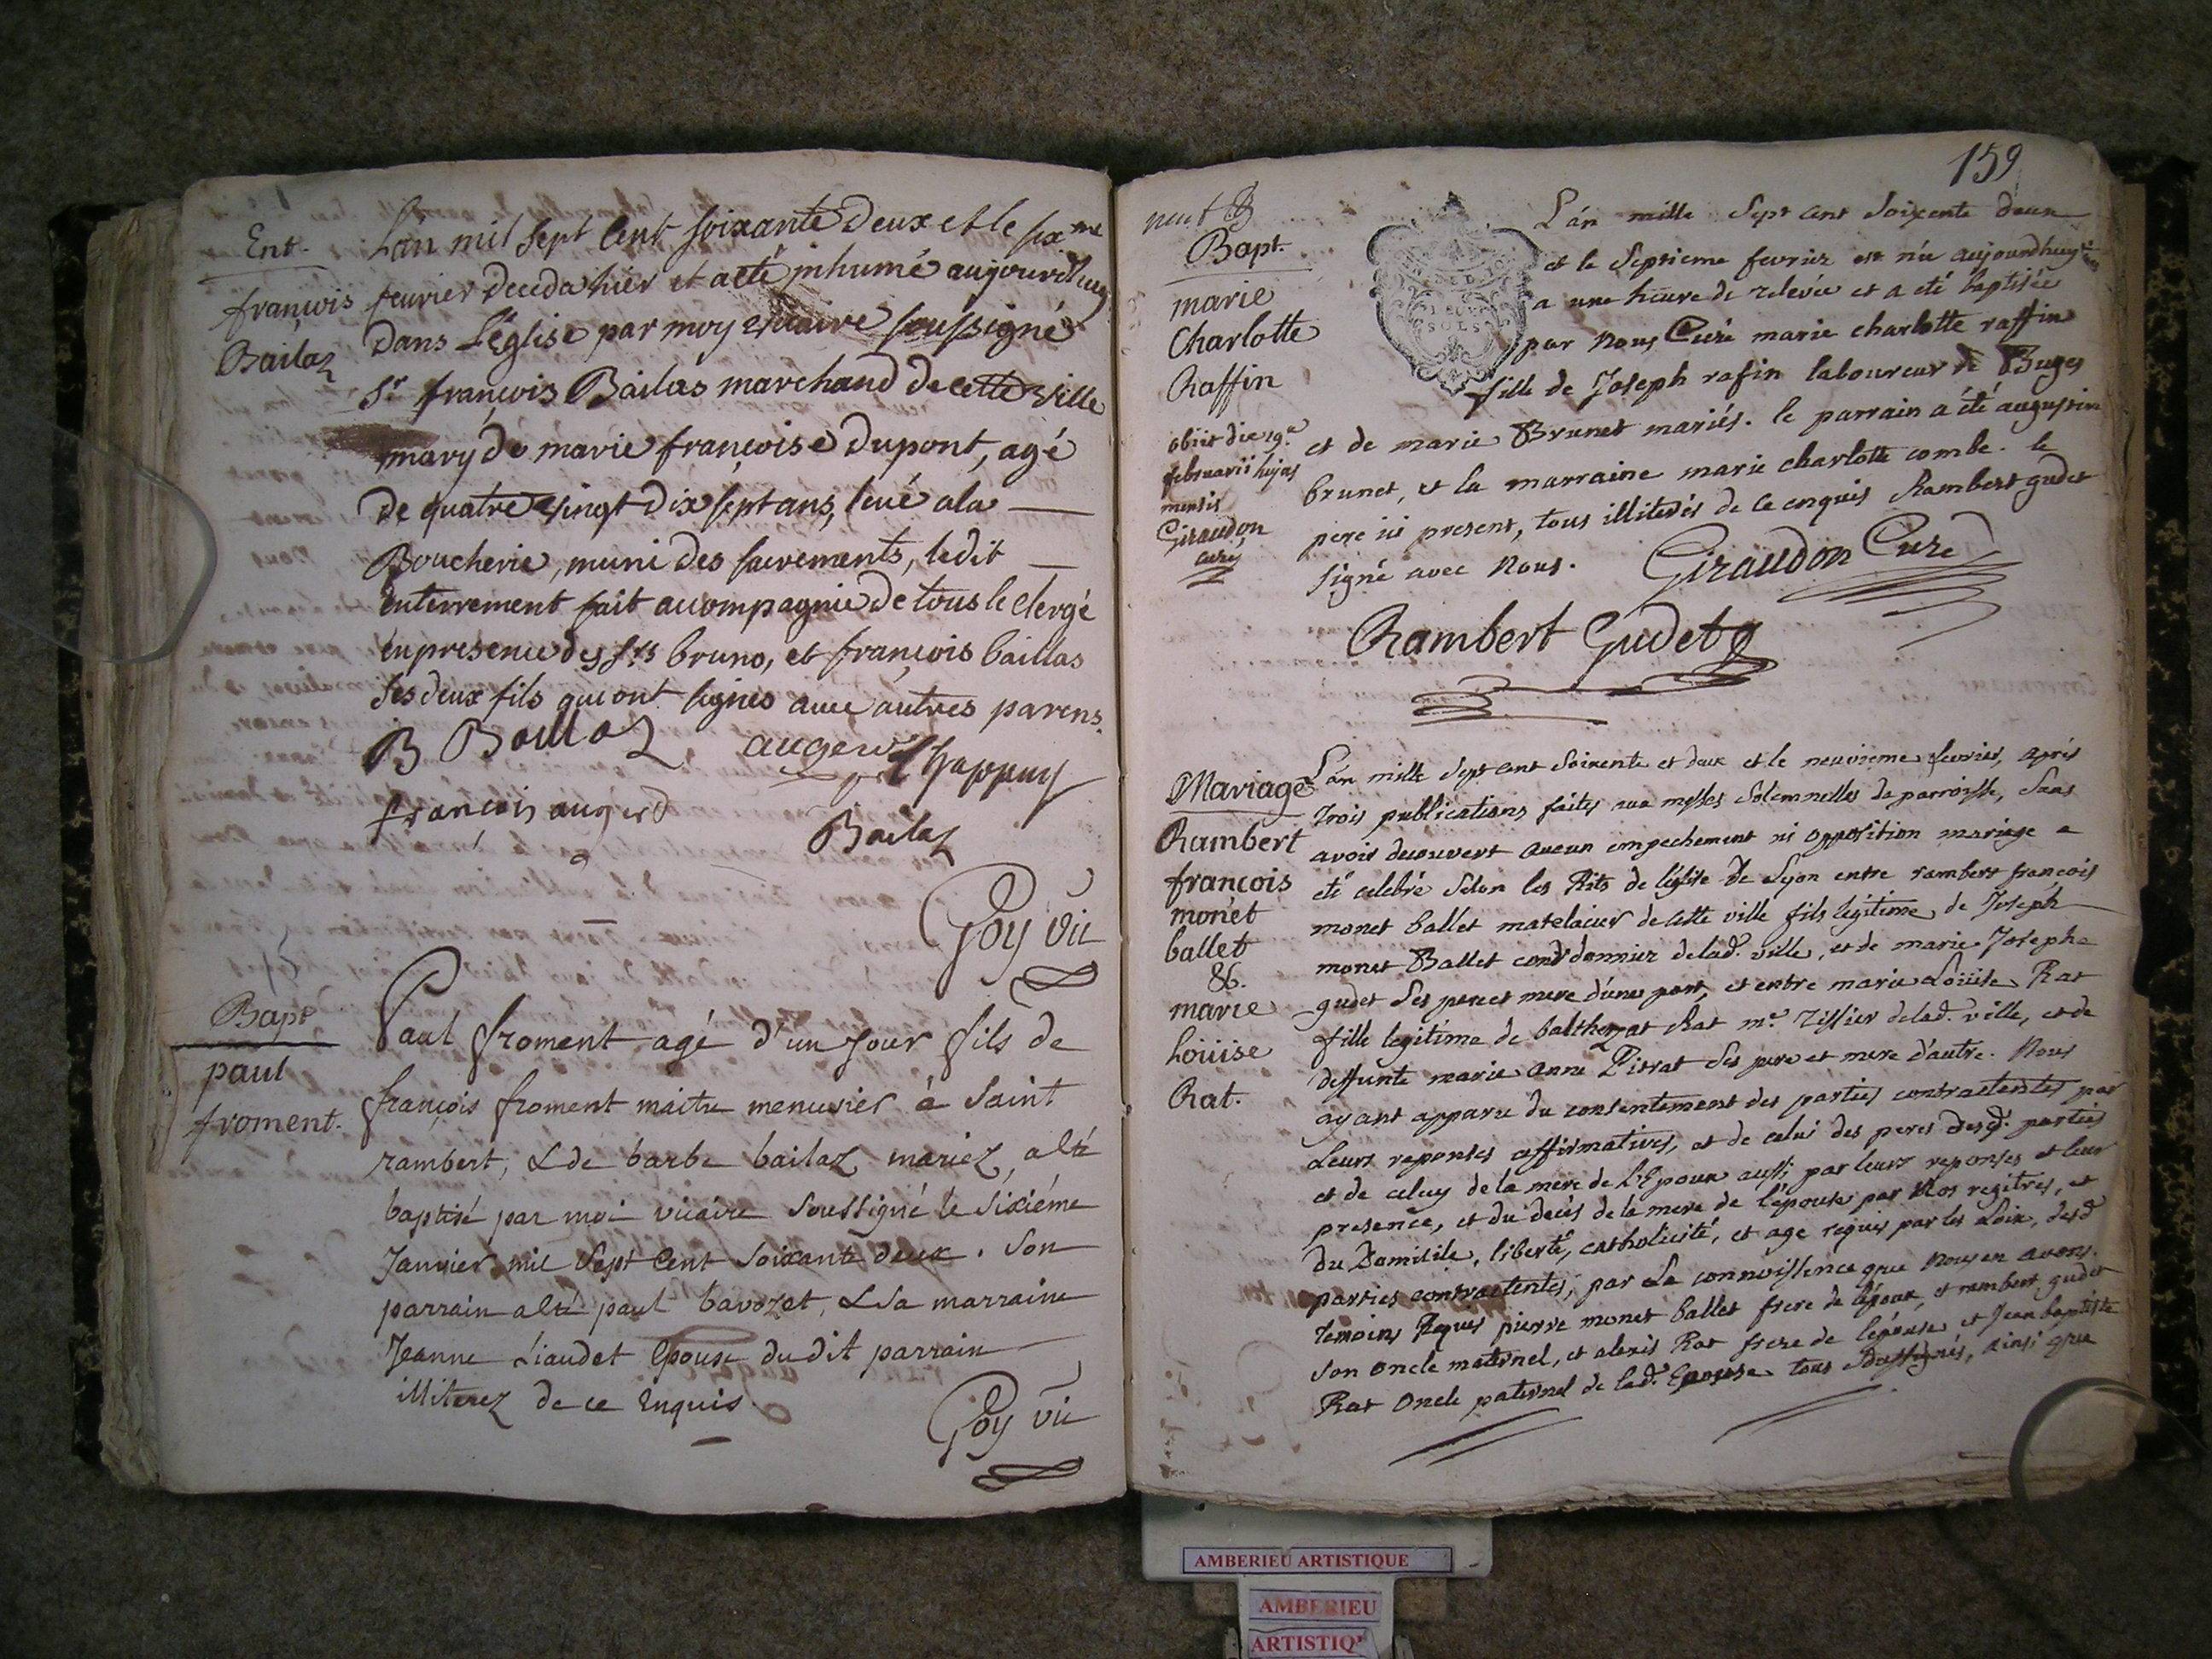 Ent.
françois
Bailaz
L'an mil sept cent soixante deux et le six me
feurier deceda hier et a eté inhumé aujourd'huy
dans L'église par moy vicaire soussigné
Sr françois Bailas marchand de cette ville
mary de marie françoise dupont, agé
de quatre vingt dix sept ans, levé a la
Boucherie, muni des sacrements, ledit
enterrement fait accompagnié de tous le clergé
en presence des srs bruno, et françois baillas
ses deux fils qui ont signés avec autres parens.
B Baillaz augerd Chappuy
francois augerd
Bailaz
Goy vic
Bapt
paul
froment.
Paul froment agé d'un jour fils de
françois froment maitre menusier à Saint
rambert, & de barbe bailaz mariez, a eté
baptisé par moi vicaire soussigné le sixiéme
Janvier mil sept cent soixante deux. Son
parrain a eté paul bavozat, & sa marraine
Jeanne Liaudet epouse du dit parrain
illiterez de ce enquis.
Goy vic
159
Bapt.
marie
Charlotte
Raffin
obiit die 19a
februarii hujus
mensis
Giraudon
curé
L'an mille Sept cent Soixente deux
et le Septieme fevrier est née aujourdhuy
a une heure de relevée et a eté baptisée
par nous Curé marie charlotte raffin
fille de Joseph rafin laboureur de Buges
et de marie Brunet mariés. le parrain a été augustin
brunet, et la marraine marie charlotte combe. le
pere ici present, tous illiterés de ce enquis Rambert gudet
signé avec nous. Giraudon Curé
Rambert Gudet
Mariage
Rambert
françois
monet
ballet
&.
marie
Loüise
Rat.
L'an mille Sept cent Soixente et deux et le neuvieme fevrier, après
trois publications faites aux messes Solemnelles de parroisse, Sans
avoir decouvert aucun empechement ni opposition mariage a
eté celebré Selon les Rits de l'église de Lyon entre rambert françois
monet ballet matelacier de cette ville fils legitime de Joseph
monet Ballet cordonnier de lad. ville, et de marie Josephe
gudet Ses pere et mere d'une part, et entre marie Loüise Rat
fille legitime de balthezat Rat me. Tissier de lad. ville, et de
deffunte marie anne Pitrat Ses pere et mere d'autre. Nous
ayant apparu du consentement des parties contractentes par
Leurs reponses affirmatives, et de celui des peres desd. parties
et de celuy de la mere de l'Epoux aussi par leurs reponses et leur
presence, et du decès de la mere de l'épouse par Nos regitres, et
du Domicile, liberté, catholicité, et age requis par les Loix, desd
parties contractentes, par La connoissence que nous en avons.
temoins Requis pierre monet ballet frere de l'époux, et rambert gudet
son oncle maternel, et alexis Rat frere de l'épouse et Jean baptiste
Rat oncle paternel de lad. Epouse tous soussignés, ainsi que
AMBERIEU ARTISTIQUE
AMBERIEU
ARTISTIQ